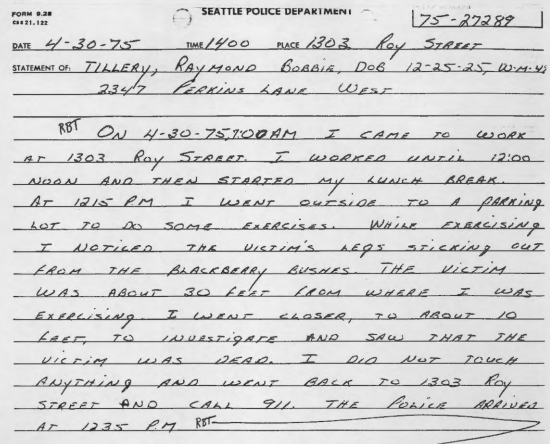 FORM 9.28
CSS 21.122
SEATTLE POLICE DEPARTMENT
75-27289
DATE 4-30-75 TIME 1400 PLACE 1303 ROY STREET
STATEMENT OF: TILLERY, RAYMOND BOBBIE, DOB 12-25-25, W-M-49
2347 PERKINS LANE WEST
RBT ON 4-30-75, 7:00 AM I CAME TO WORK
AT 1303 ROY STREET. I WORKED UNTIL 12:00
NOON AND THEN STARTED MY LUNCH BREAK.
AT 1215 PM I WENT OUTSIDE TO A PARKING
LOT TO DO SOME EXERCISES. WHILE EXERCISING
I NOTICED THE VICTIM'S LEGS STICKING OUT
FROM THE BLACKBERRY BUSHES. THE VICTIM
WAS ABOUT 30 FEET FROM WHERE I WAS
EXERCISING. I WENT CLOSER, TO ABOUT 10
FEET, TO INVESTIGATE AND SAW THAT THE
VICTIM WAS DEAD. I DID NOT TOUCH
ANYTHING AND WENT BACK TO 1303 ROY
STREET AND CALL 911. THE POLICE ARRIVED
AT 1235 P.M RBT